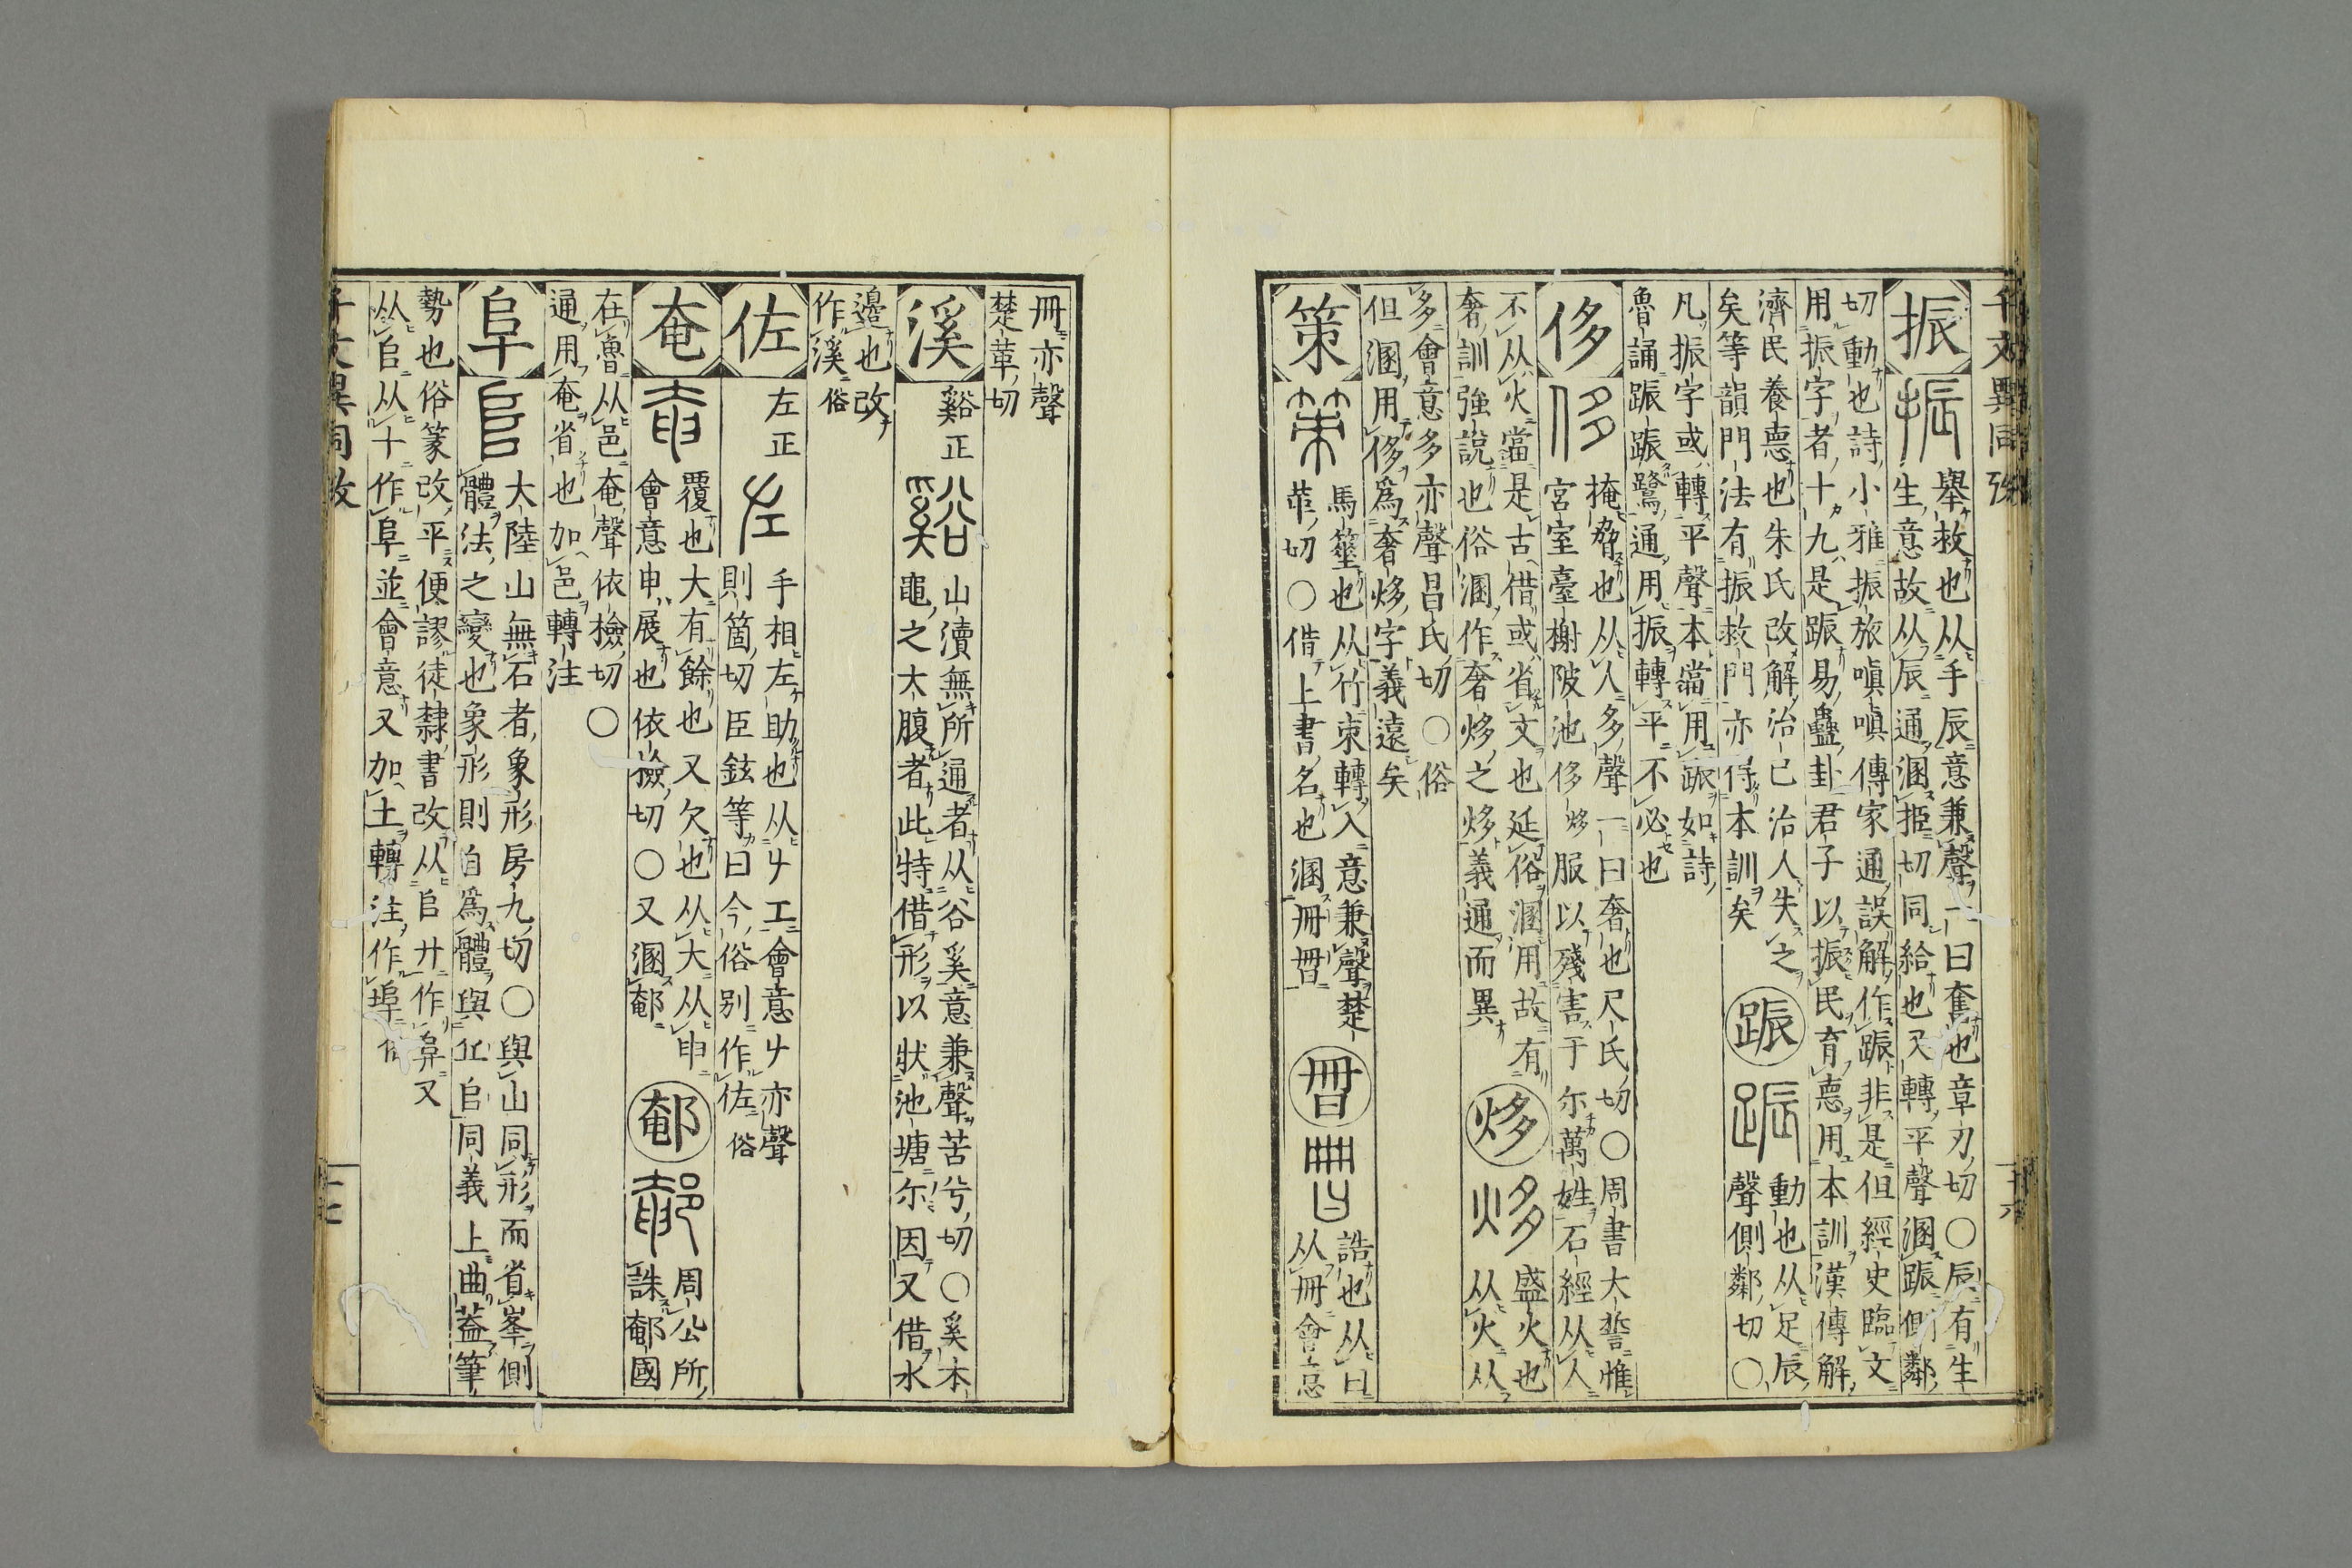 千文異同攷
振
舉救也从手辰意兼聲一曰奮也章刃切〇辰有生
生意故从辰通溷挋切同給也又轉平聲溷踬側鄰
切動也詩小雅振旅嗔嗔傳家通誤解作踬非是但經史臨文
用振字者十九是踬易蠱卦君子以振民育悳用本訓漢傳解
濟民養悳也朱氏改解治已治人失之
矣等韻門法有振救門亦得本訓矣
動也从足辰
聲側鄰切〇
凡振字或轉平聲本當用踬如詩
魯誦踬踬鷺通用振轉平不必也
侈
掩脅也从人多聲一曰奢也尺氏切〇周書大誓惟
宮室臺榭陂池侈㶴服以殘害于尓萬姓石經从人
不从火當是古借或省文也延俗溷用故有
奢訓強說也俗溷作奢㶴之㶴義通而異
㶴
盛火也
从火从
多會意多亦聲昌氏切〇俗
但溷用侈爲奢㶴字義遠矣
策
馬箠也从竹朿轉入意兼聲楚
革切〇借上書名也溷冊𠕋
誥也从曰
从冊會意
冊亦聲
楚革切
溪
谿正
山瀆無所通者从谷奚意兼聲苦兮切〇奚本
黽之大腹者此特借形以狀池塘尓因又借水
邊也改
作溪俗
佐
左正
手相左助也从𠂇工會意𠂇亦聲
則箇切臣鉉等曰今俗别作佐俗
奄
覆也大有餘也又欠也从大从申
會意申展也依撿切〇又溷䣍
䣍
周公所
誅䣍國
在魯从邑奄聲依檢切〇
通用奄省也加邑轉注
阜
大陸山無石者象形房九切〇與山同形而省峯側
體法之變也象形則𦣹爲體與丘𠂤同義上曲葢筆
勢也俗篆改平便謬徒隸書改从𠂤廾作𨸏又
从𠂤从十作阜並會意又加土轉注作埠俗
千文異同攷